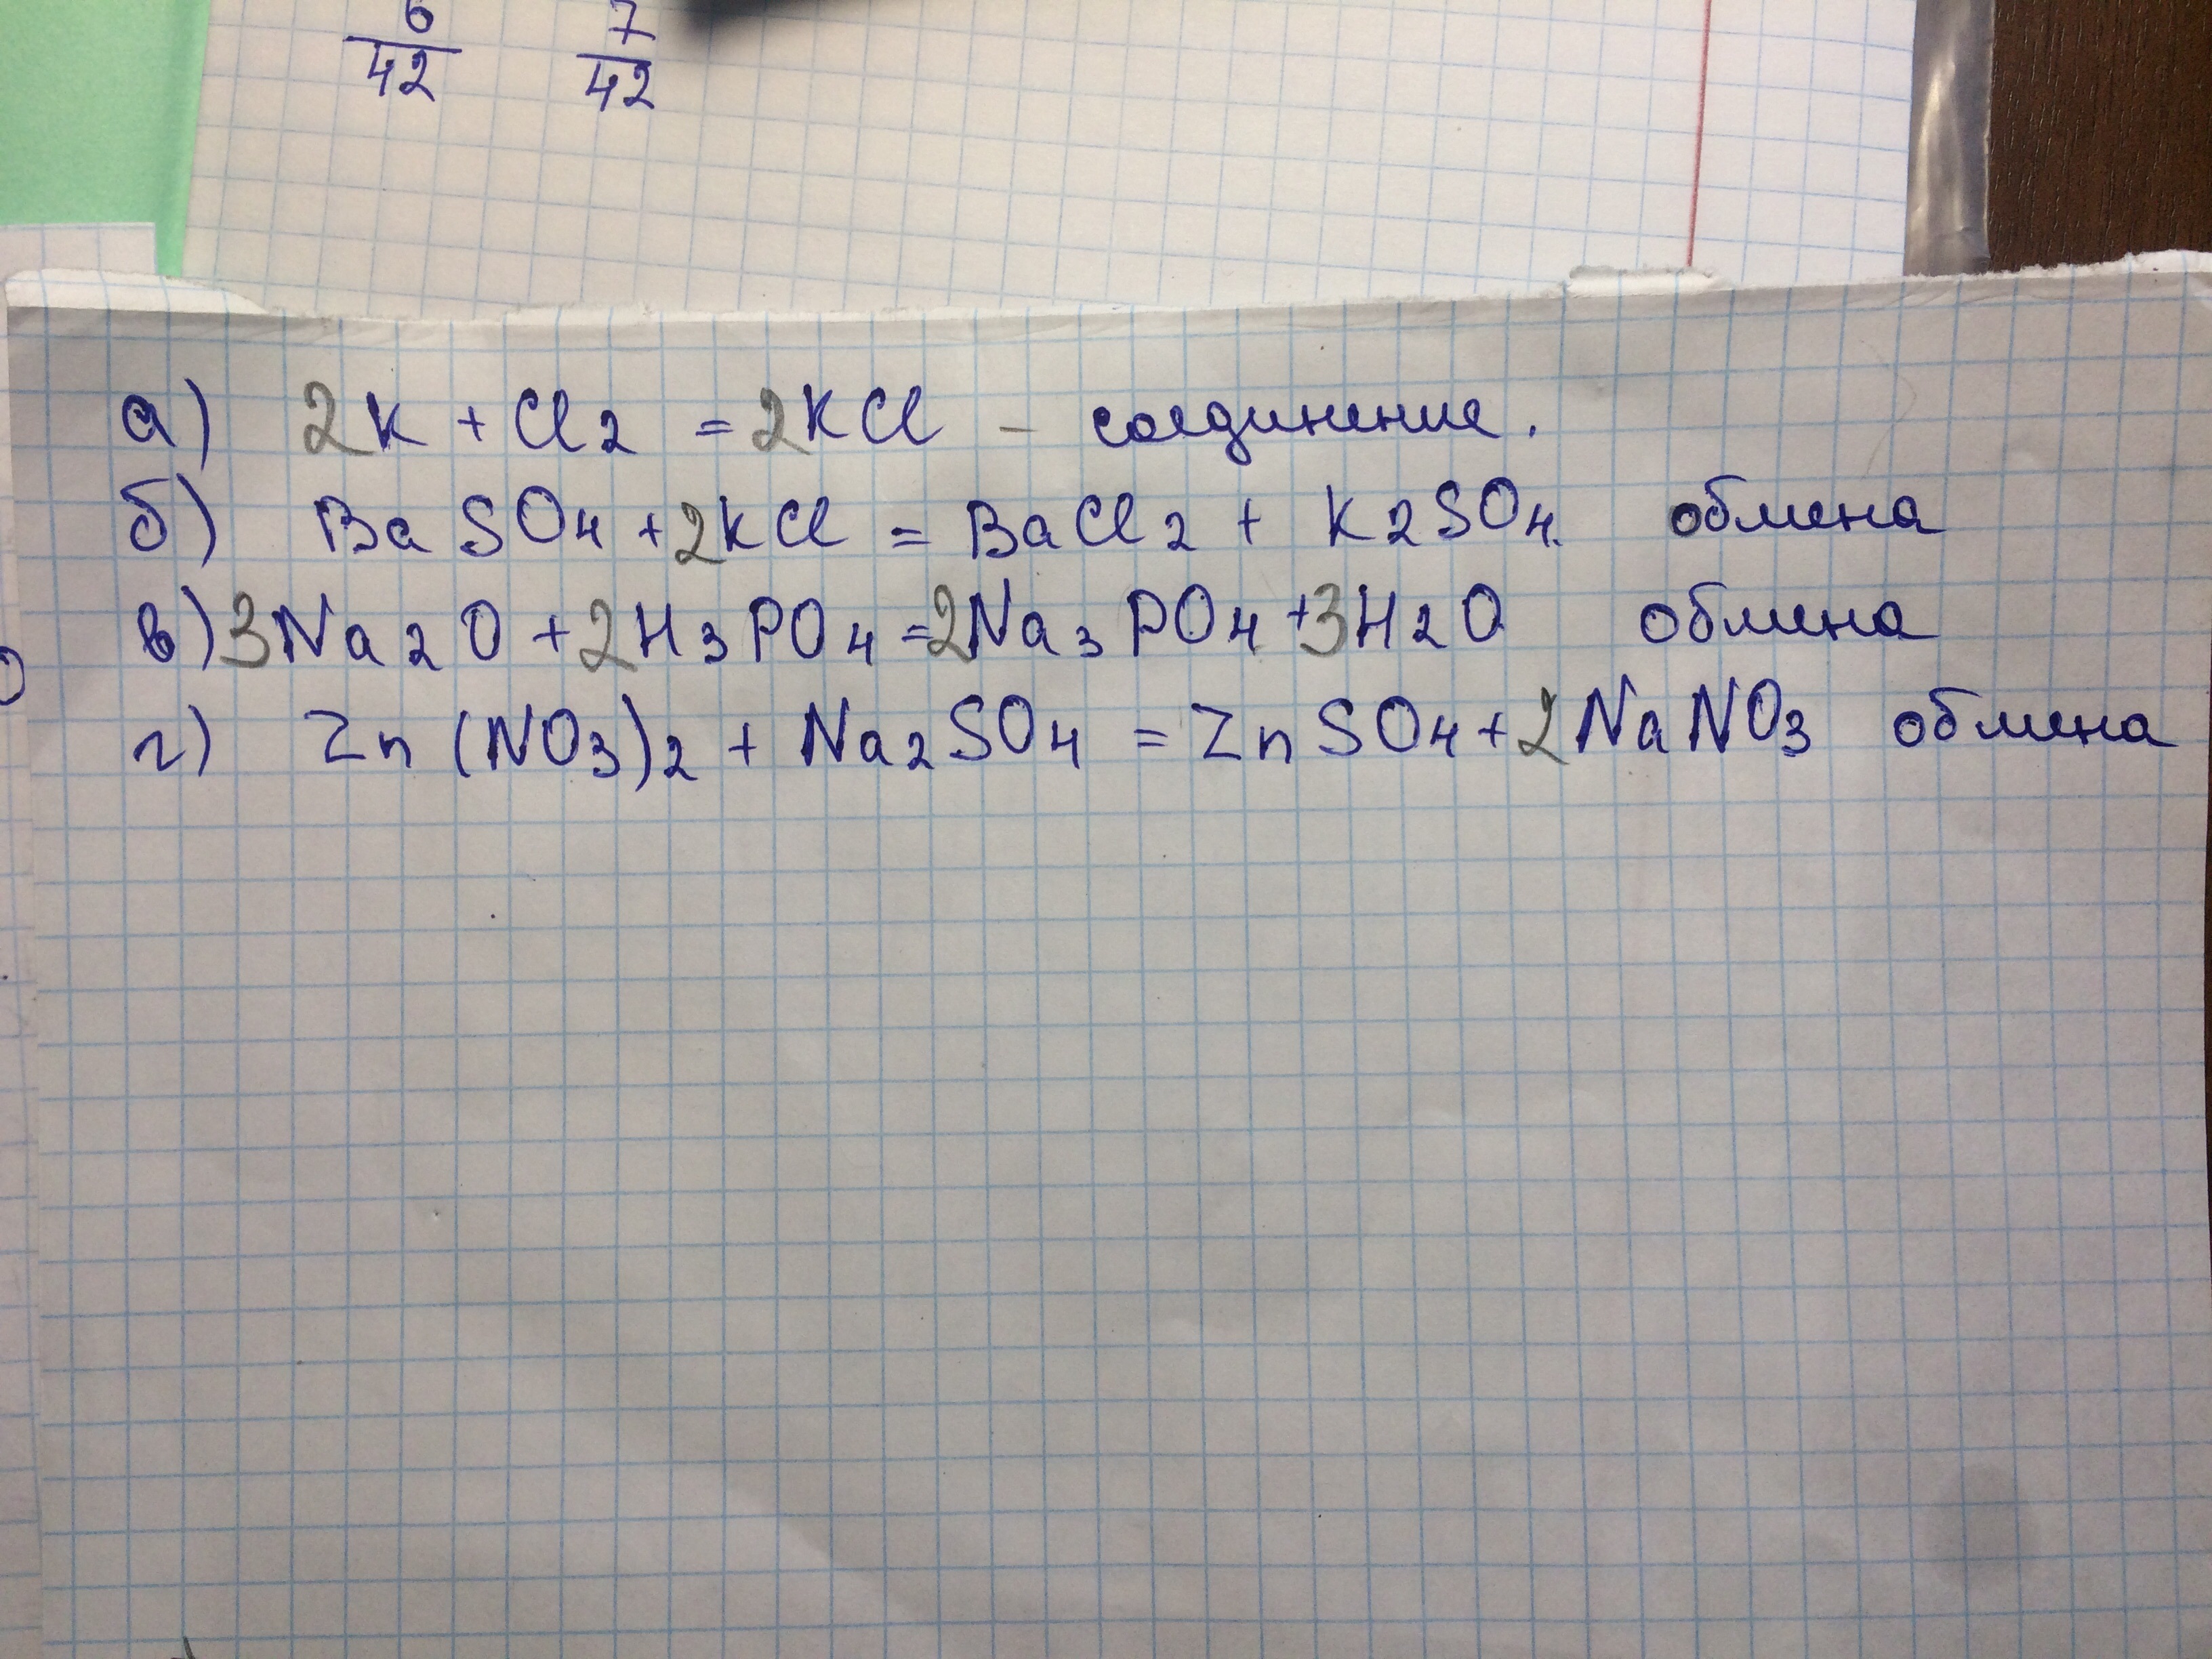 6/42 7/42
а) 2K + Cl2 = 2KCl – соединение.
б) BaSO4 + 2KCl = BaCl2 + K2SO4. обмена
в) 3Na2O + 2H3PO4 = 2Na3PO4 + 3H2O обмена
г) Zn(NO3)2 + Na2SO4 = ZnSO4 + 2NaNO3 обмена